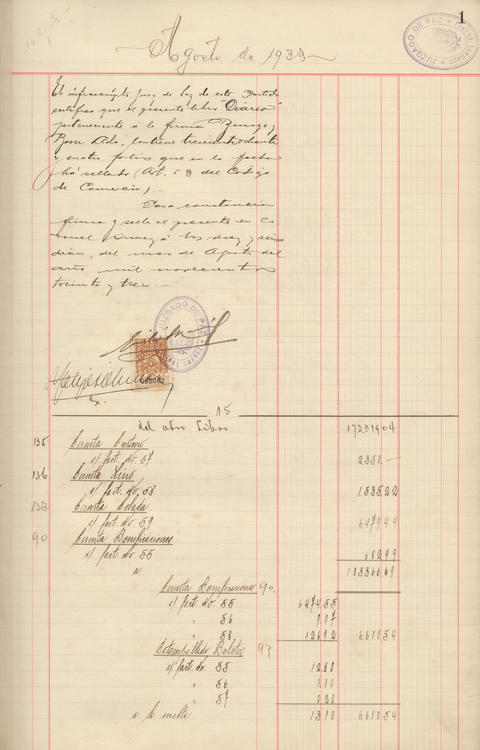 1
16 Agosto
Agosto de 1933
JUZGADO DE PAZ
El infrascripto Juez de Paz de este Partido
certifica que el presente libro "Diario"
perteneciente á la firma Bunge y
Born Ltda, contiene trescientos ochenta
y cuatro folios que en la fecha
ha sellado (Art. 53 del Código
de Comercio).
Para constancia
firma y sella el presente en Co-
ronel Suarez á los diez y seis
dias, del mes de Agosto del
año mil novecientos
treinta y tres.
JUZGADO DE PAZ
CORONEL SUAREZ
085082
15
del otro Libro 17231904
135 Cuenta
s/ fact. no. 57 2350 —
136 Cuenta Lino
s/ fact. no. 58 153522
133 Cuenta Cebada
s/ fact. no. 59 647944
90 Cuenta Bonificaciones
s/ fact. no. 55 68299
18336669
a
Cuenta Bonificaciones 90.
s/ fact. no. 55 647455
" 56 907
" 58 12692 661054
Estampillado Boletos 97
s/ fact. no. 55 1280
" 56 010
" 57 020
a la vuelta 1310 661054